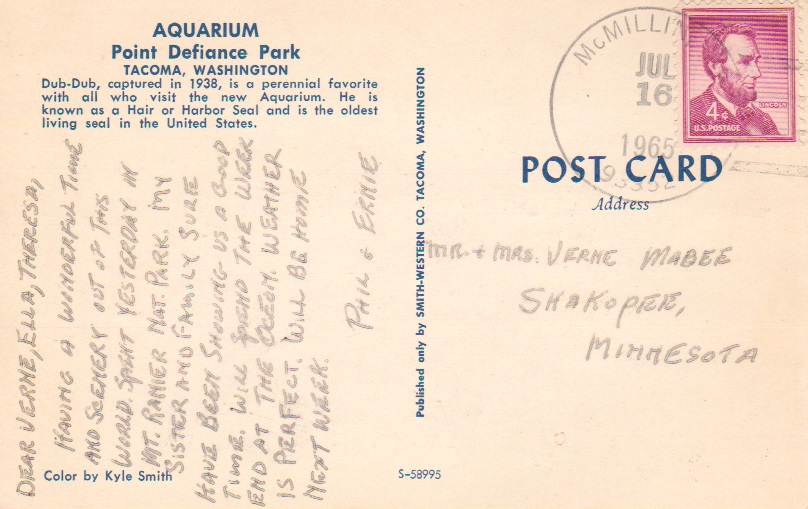 AQUARIUM
Point Defiance Park
TACOMA, WASHINGTON
Dub-Dub, captured in 1938, is a perennial favorite
with all who visit the new Aquarium. He is
known as a Hair or Harbor Seal and is the oldest
living seal in the United States.
DEAR VERNE, ELLA, THERESA,
HAVING A WONDERFUL TIME
AND SCENERY OUT OF THIS
WORLD. SPENT YESTERDAY IN
MT. RANIER NAT. PARK. MY
SISTER AND FAMILY SURE
HAVE BEEN SHOWING US A GOOD
TIME. WILL SPEND THE WEEK
END AT THE OCEAN. WEATHER
IS PERFECT. WILL BE HOME
NEXT WEEK.
PHIL & ERNIE
Color by Kyle Smith
S-58995
Published only by SMITH-WESTERN CO. TACOMA, WASHINGTON
McMILLIN
JUL
16
1965
LINCOLN
4¢
U.S. POSTAGE
POST CARD
Address
MR. & MRS. VERNE MABEE
SHAKOPEE,
MINNESOTA